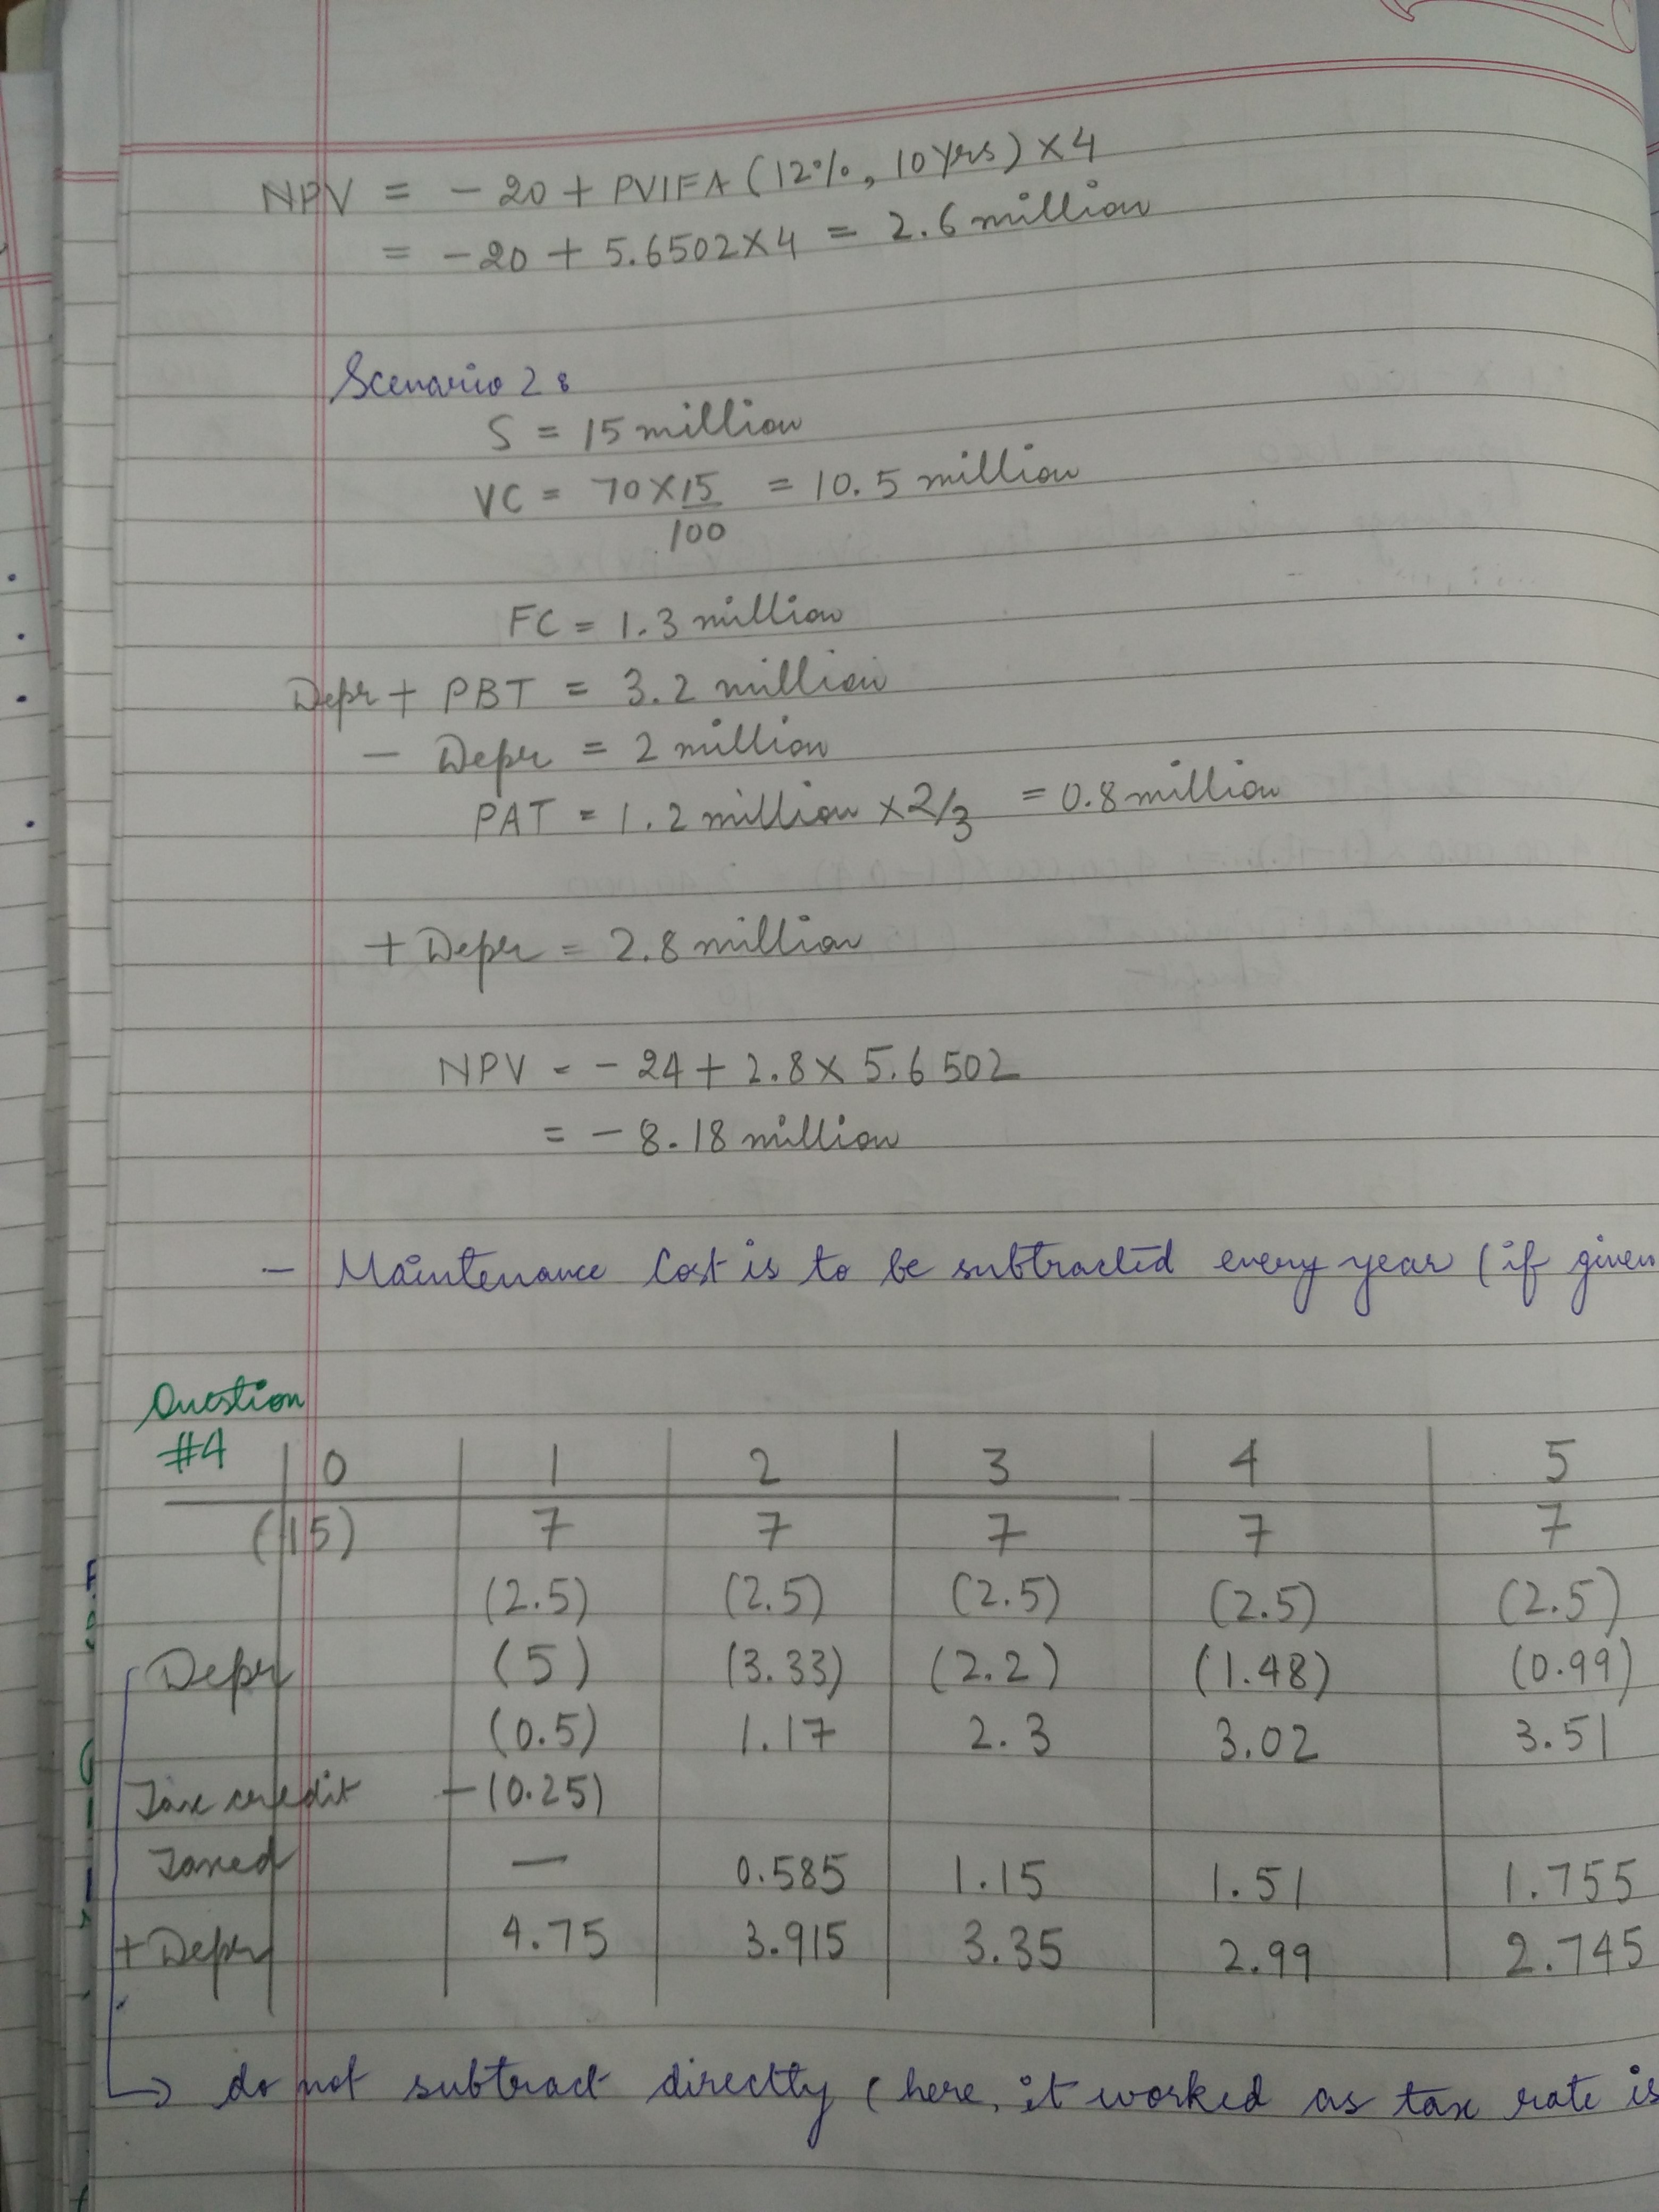 NPV = - 20 + PVIFA (12%, 10 yrs) × 4
= - 20 + 5.6502 × 4 = 2.6 million
Scenario 2 :
S = 15 million
VC = 70 × 15 / 100 = 10.5 million
FC = 1.3 million
Depr + PBT = 3.2 million
- Depr = 2 million
PAT = 1.2 million × 2/3 = 0.8 million
+ Depr = 2.8 million
NPV = - 24 + 2.8 × 5.6502
= - 8.18 million
- Maintenance Cost is to be subtracted every year (if given
Question
#4 0 1 2 3 4 5
(15) 7 7 7 7 7
(2.5) (2.5) (2.5) (2.5) (2.5)
Depr (5) (3.33) (2.2) (1.48) (0.99)
(0.5) 1.17 2.3 3.02 3.51
Tax credit -(0.25)
Taxed — 0.585 1.15 1.51 1.755
+ Depr 4.75 3.915 3.35 2.99 2.745
→ do not subtract directly (here, it worked as tax rate is